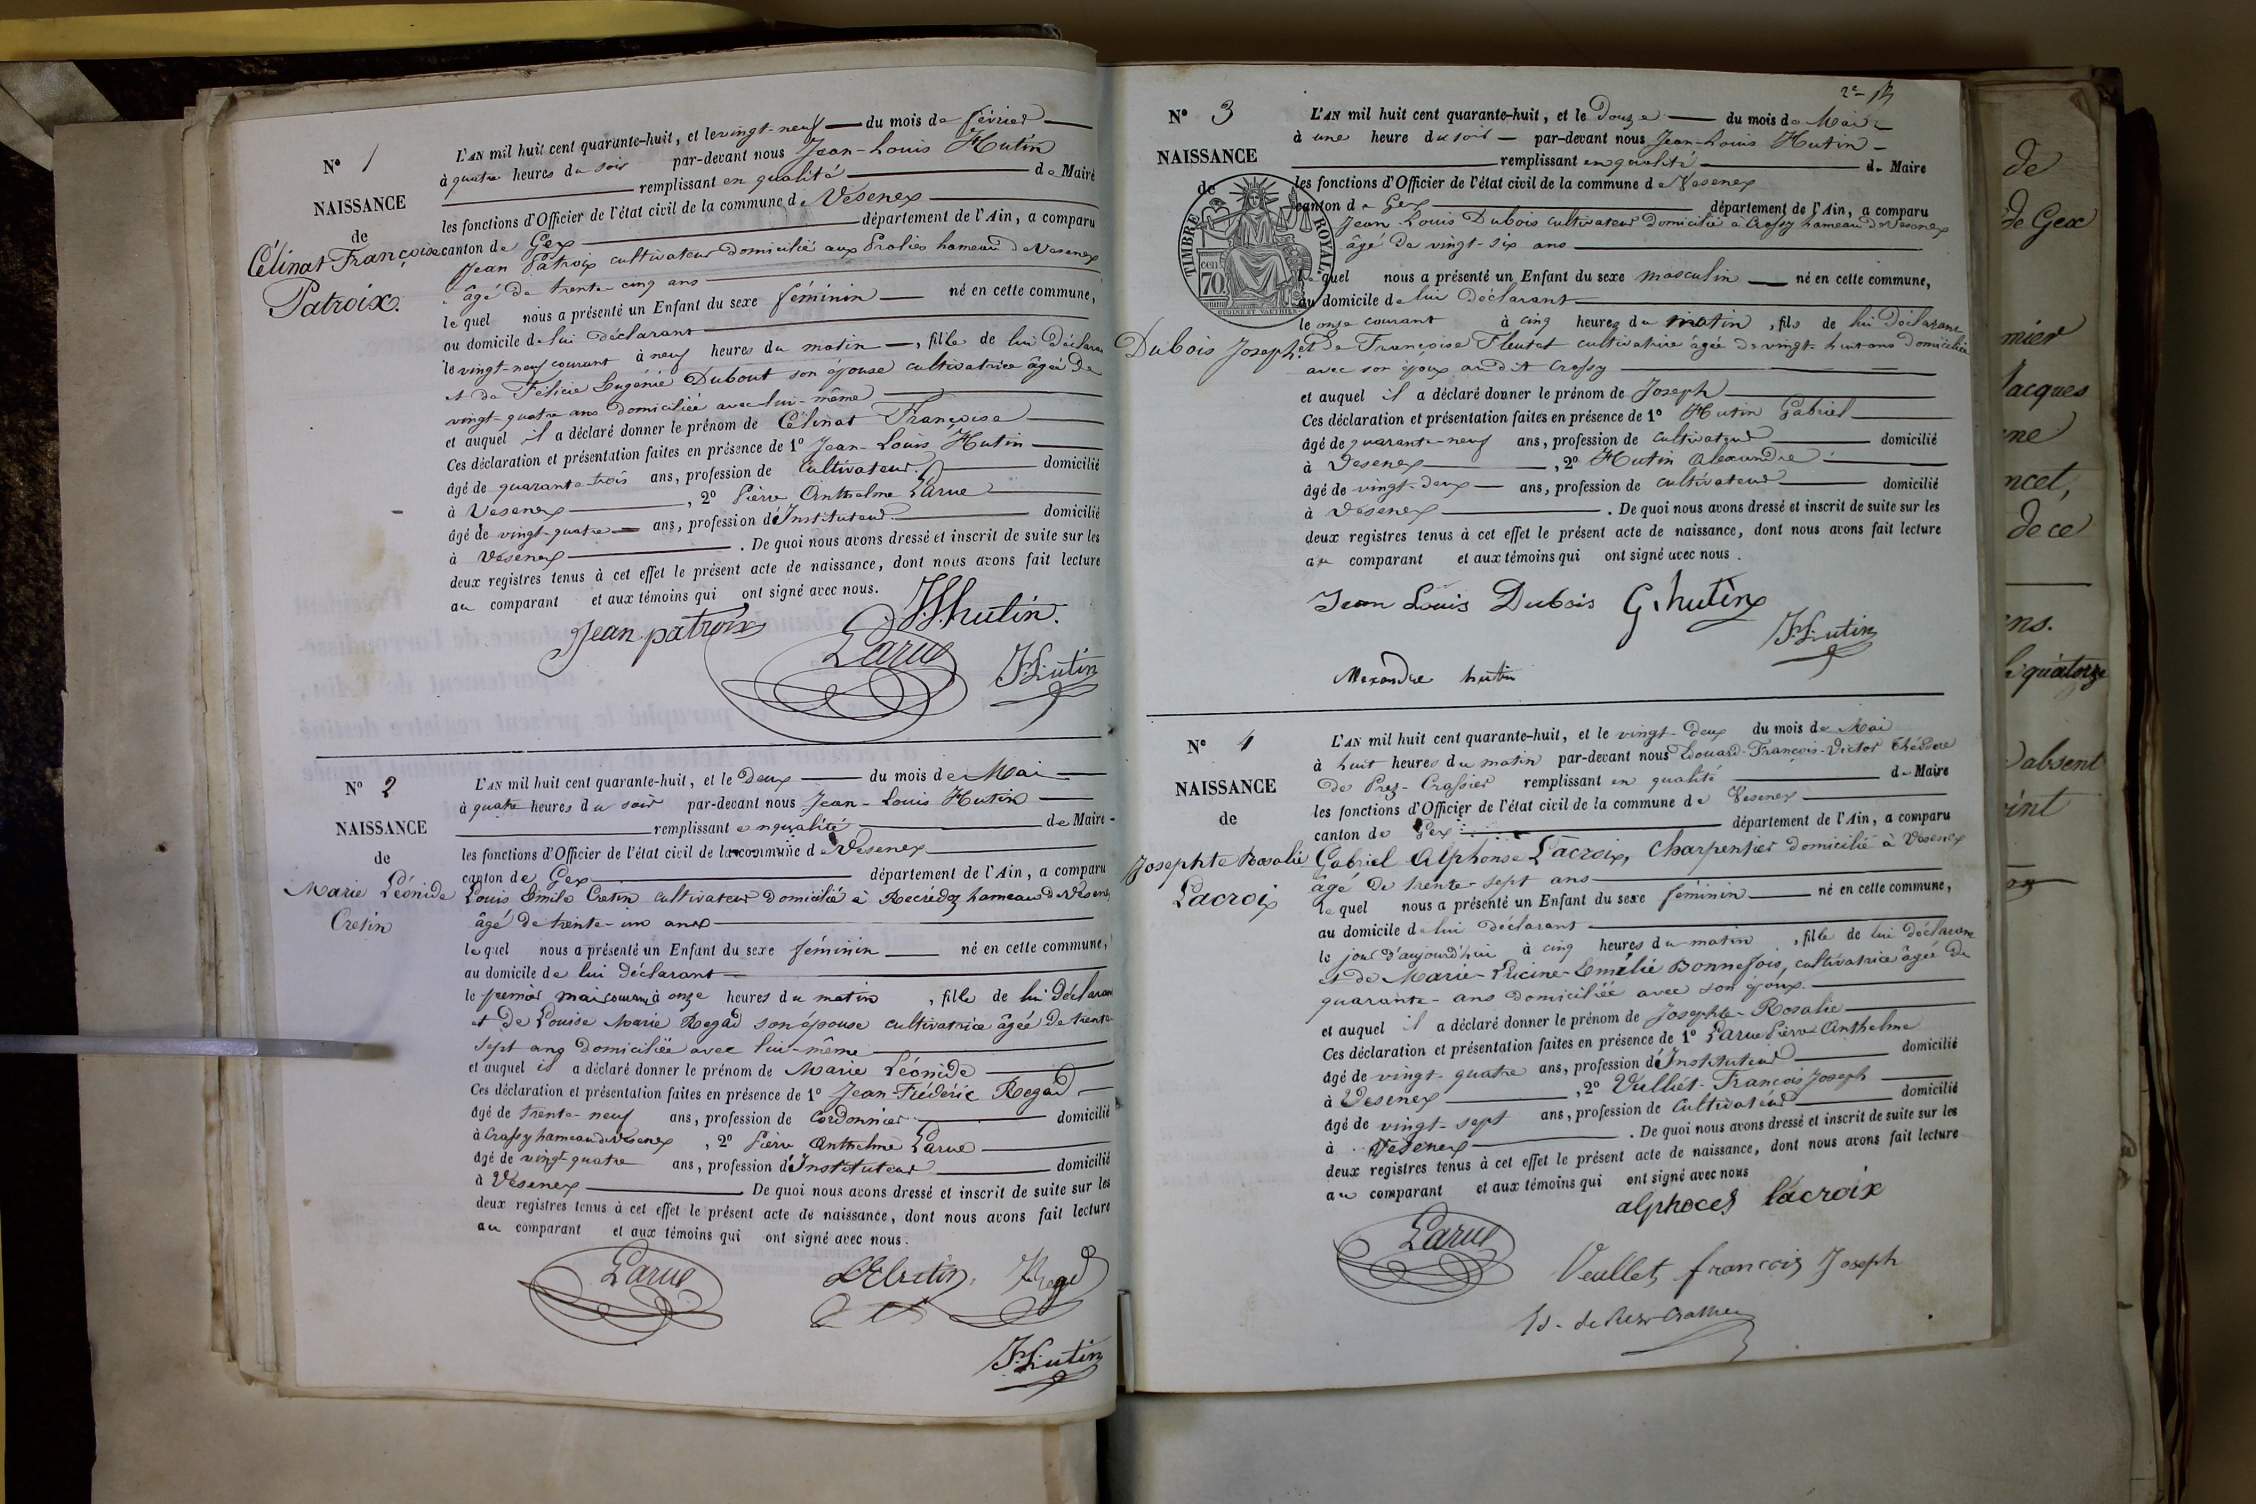 N° 1
NAISSANCE
de
Célinat Françoise
Patroix.
L'AN mil huit cent quarante-huit, et le vingt-neuf du mois de février
à quatre heures du soir par-devant nous Jean-Louis Hutin
remplissant en qualité de Maire
les fonctions d'Officier de l'état civil de la commune de Vesenex
canton de Gex département de l'Ain, a comparu
Jean Patroix cultivateur domicilié aux hameau de Vesenex
âgé de trente cinq ans
lequel nous a présenté un Enfant du sexe féminin né en cette commune,
au domicile de lui déclarant
le vingt-neuf courant à neuf heures du matin, fille de lui déclarant
et de Félicie Eugénie Dubout son épouse cultivatrice âgée de
vingt-quatre ans domiciliée avec lui-même
et auquel il a déclaré donner le prénom de Célinat Françoise
Ces déclaration et présentation faites en présence de 1° Jean-Louis Hutin
âgé de quarante-trois ans, profession de cultivateur domicilié
à Vesenex, 2° Pierre Anthelme Larue
âgé de vingt-quatre ans, profession d'Instituteur domicilié
à Vesenex. De quoi nous avons dressé et inscrit de suite sur les
deux registres tenus à cet effet le présent acte de naissance, dont nous avons fait lecture
au comparant et aux témoins qui ont signé avec nous.
Jean patroix
Larue
hutin.
Hutin
N° 2
NAISSANCE
de
Marie Léonide
Cretin
L'AN mil huit cent quarante-huit, et le Deux du mois de Mai
à quatre heures du soir par-devant nous Jean-Louis Hutin
remplissant en qualité de Maire
les fonctions d'Officier de l'état civil de la commune de Vesenex
canton de Gex département de l'Ain, a comparu
Louis Emile Cretin cultivateur domicilié à Recrédoz hameau de Vesenex
âgé de trente-un ans
lequel nous a présenté un Enfant du sexe féminin né en cette commune,
au domicile de lui déclarant
le premier mai courant à onze heures du matin, fille de lui déclarant
et de Louise Marie Regad son épouse cultivatrice âgée de trente
sept ans domiciliée avec lui-même
et auquel il a déclaré donner le prénom de Marie Léonide
Ces déclaration et présentation faites en présence de 1° Jean-Frédéric Regad
âgé de trente-neuf ans, profession de Cordonnier domicilié
à Crassy hameau de Vesenex, 2° Pierre Anthelme Larue
âgé de vingt quatre ans, profession d'Instituteur domicilié
à Vesenex De quoi nous avons dressé et inscrit de suite sur les
deux registres tenus à cet effet le présent acte de naissance, dont nous avons fait lecture
au comparant et aux témoins qui ont signé avec nous.
Larue
Cretin
Regad
Hutin
N° 3
NAISSANCE
de
Dubois Joseph.
TIMBRE ROYAL
cen 70
L'AN mil huit cent quarante-huit, et le Douze du mois de Mai
à une heure du soir par-devant nous Jean-Louis Hutin
remplissant en qualité de Maire
les fonctions d'Officier de l'état civil de la commune de Vesenex
canton de Gex département de l'Ain, a comparu
Jean Louis Dubois cultivateur domicilié à Crassy hameau de Vesenex
âgé de vingt-six ans
lequel nous a présenté un Enfant du sexe masculin né en cette commune,
au domicile de lui déclarant
le onze courant à cinq heures du matin, fils de lui déclarant
et de Françoise Fleutet cultivatrice âgée de vingt-huit ans domiciliée
avec son époux au dit Crassy
et auquel il a déclaré donner le prénom de Joseph
Ces déclaration et présentation faites en présence de 1° Hutin Gabriel
âgé de quarante-neuf ans, profession de cultivateur domicilié
à Vesenex, 2° Hutin Alexandre
âgé de vingt-deux ans, profession de cultivateur domicilié
à Vesenex. De quoi nous avons dressé et inscrit de suite sur les
deux registres tenus à cet effet le présent acte de naissance, dont nous avons fait lecture
au comparant et aux témoins qui ont signé avec nous.
Jean Louis Dubois G. hutin
Hutin
Alexandre hutin
N° 4
NAISSANCE
de
Josephte Rosalie
Lacroix
L'AN mil huit cent quarante-huit, et le vingt-deux du mois de Mai
à huit heures du matin par-devant nous Edouard-François-Victor Théodore
de Prez-Crassier remplissant en qualité de Maire
les fonctions d'Officier de l'état civil de la commune de Vesenex
canton de Gex département de l'Ain, a comparu
Gabriel Alphonse Lacroix, Charpentier domicilié à Vesenex
âgé de trente-sept ans
lequel nous a présenté un Enfant du sexe féminin né en cette commune,
au domicile de lui déclarant
le jour d'aujourd'hui à cinq heures du matin, fille de lui déclarant
et de Marie-Lucine-Emélie Bonnefois, cultivatrice âgée de
quarante-ans domiciliée avec son époux.
et auquel il a déclaré donner le prénom de Josephte-Rosalie
Ces déclaration et présentation faites en présence de 1° Larue Pierre Anthelme
âgé de vingt-quatre ans, profession d'Instituteur domicilié
à Vesenex, 2° Vulliet-François Joseph
âgé de vingt-sept ans, profession de Cultivateur domicilié
à Vesenex. De quoi nous avons dressé et inscrit de suite sur les
deux registres tenus à cet effet le présent acte de naissance, dont nous avons fait lecture
au comparant et aux témoins qui ont signé avec nous
alphoces lacroix
Larue
Veullet francois Joseph
Ed. de Prez-Crassier
de
de Gex
mier
Jacques
ne
ncet,
de ce
ens.
quatorze
absent
oint